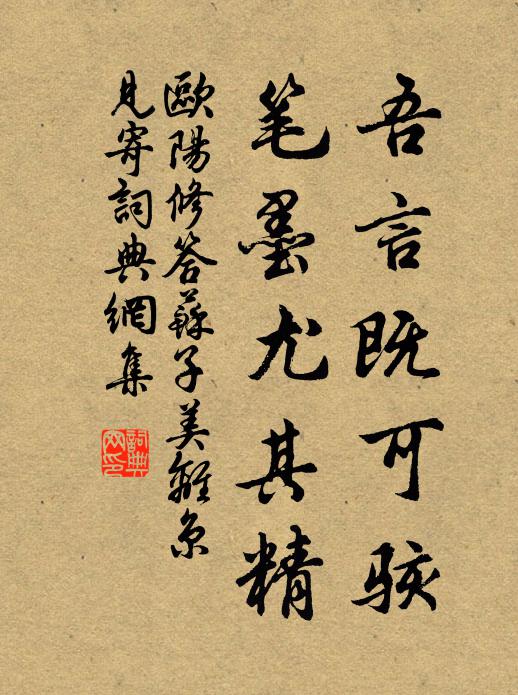 吾言既可骇
笔墨尤其精
歐陽修答蘇子美離京
見寄詞典網集
詞典网印